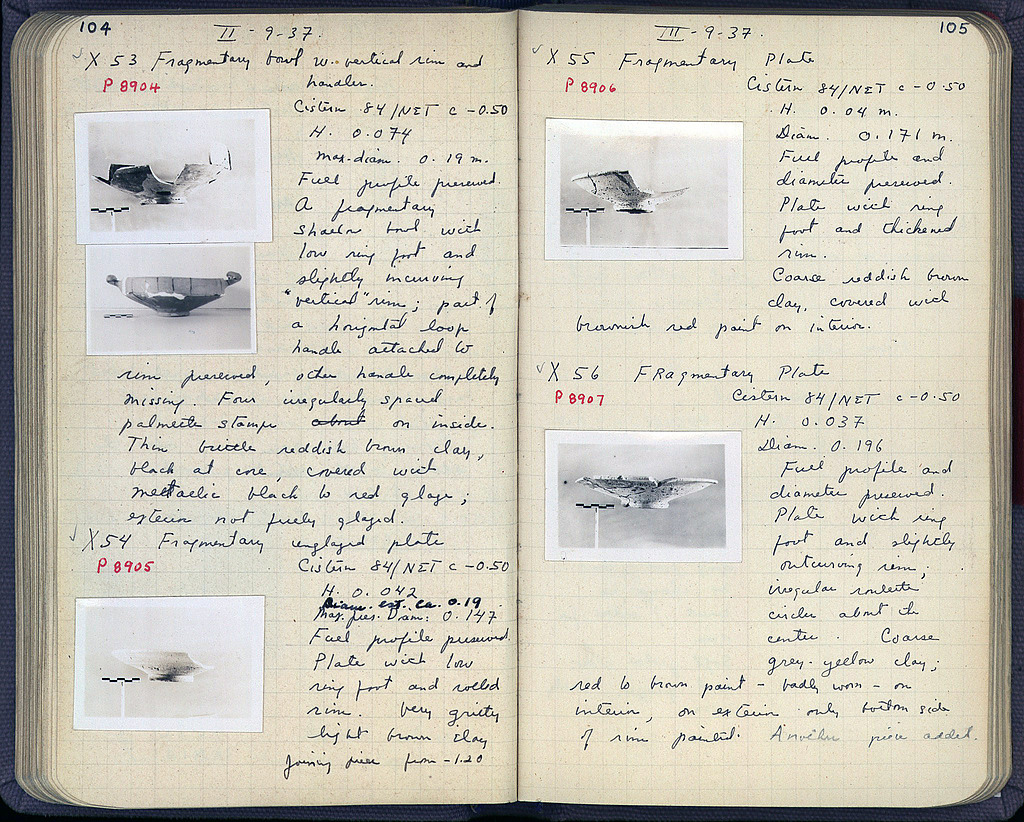 104
II - 9 - 37.
X 53 Fragmentary bowl w. vertical rim and
handles.
P 8904
Cistern 84/NΣT c -0.50
H. 0.074
max. diam. 0.19 m.
Full profile preserved.
A fragmentary
shallow bowl with
low ring foot and
slightly incurving
"vertical" rim; part of
a horizontal loop
handle attached to
rim preserved, other handle completely
missing. Four irregularly spaced
palmette stamps about on inside.
Thin brittle reddish brown clay,
black at core, covered with
metallic black to red glaze;
exterior not fully glazed.
X 54 Fragmentary unglazed plate
P 8905
Cistern 84/NΣT c -0.50
H. 0.042
Diam. est. ca. 0.19
Max. pres. Diam: 0.147
Full profile preserved
Plate with low
ring foot and rolled
rim. Very gritty
light brown clay
Joining piece from -1.20
105
III - 9 - 37.
X 55 Fragmentary Plate
P 8906
Cistern 84/NΣT c -0.50
H. 0.04 m.
Diam. 0.171 m.
Full profile and
diameter preserved.
Plate with ring
foot and thickened
rim.
Coarse reddish brown
clay, covered with
brownish red paint on interior.
X 56 Fragmentary Plate
P 8907
Cistern 84/NΣT c -0.50
H. 0.037
Diam. 0.196
Full profile and
diameter preserved.
Plate with ring
foot and slightly
outcurving rim;
irregular roulette
circles about the
center. Coarse
grey-yellow clay;
red to brown paint - badly worn - on
interior, on exterior only bottom side
of rim painted. Another piece added.